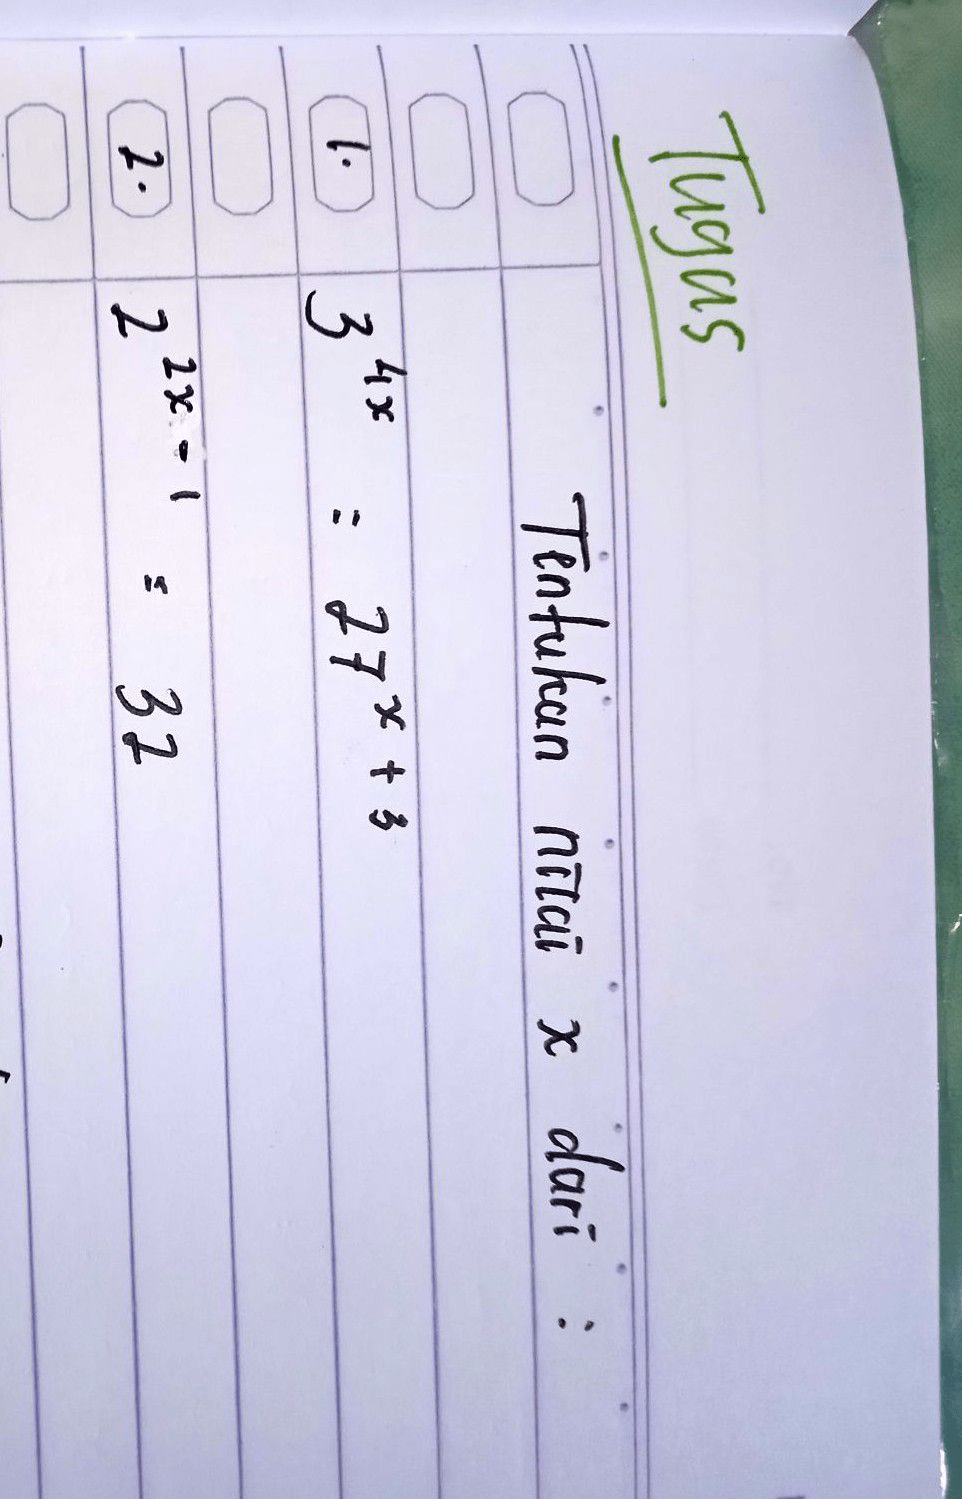 Tugas
Tentukan nilai x dari :
1. 3^{4x} = 27^{x+3}
2. 2^{2x-1} = 32